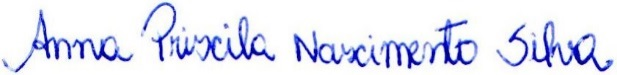 Anna Priscila Nascimento Silva